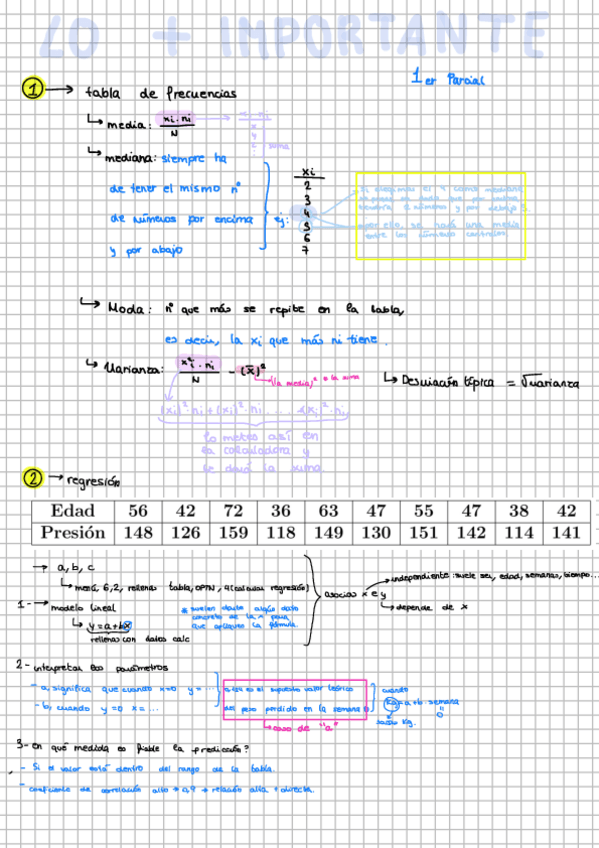 LO + IMPORTANTE
1er Parcial
1 → tabla de frecuencias
↳ media: xi·ni / N → xi·ni
suma
↳ mediana: siempre ha
de tener el mismo nº
de números por encima
y por abajo
ej:
xi
2
3
4
5
6
7
Si elegimos el 4 como mediana
por ello, se hará una media
entre los números centrales
↳ Moda: nº que más se repite en la tabla,
es decir, la xi que más ni tiene.
↳ Varianza: xi²·ni / N - (x̄)²
→ (la media)²
↳ Desviación típica = √varianza
(xi)²·ni + (xi)²·ni ... + (xi)²·ni
lo metes así en
la calculadora y
te dará la suma.
2 → regresión
Edad 56 42 72 36 63 47 55 47 38 42
Presión 148 126 159 118 149 130 151 142 114 141
→ a, b, c
↳ menú, 6, 2, rellenas tabla, OPTN, 4 (calcular regresión)
asocias x e y
independiente: suele ser, edad, semanas, tiempo...
↳ depende de x
1 - → modelo lineal
↳ y = a + bx
rellenas con datos calc
* suelen darte algún dato
concreto de la x para
que apliques la fórmula.
2 - interpretar los parámetros
- a, significa que cuando x=0 y= ...
- b, cuando y=0 x= ...
este es el supuesto valor teórico
del peso perdido en la semana 0
↳ caso de "a"
cuando
kg = a + b · semana
0
kg.
3 - en qué medida es fiable la predicción?
- Si el valor está dentro del rango de la tabla.
- coeficiente de correlación alto → 0,9 → relación alta + directa.